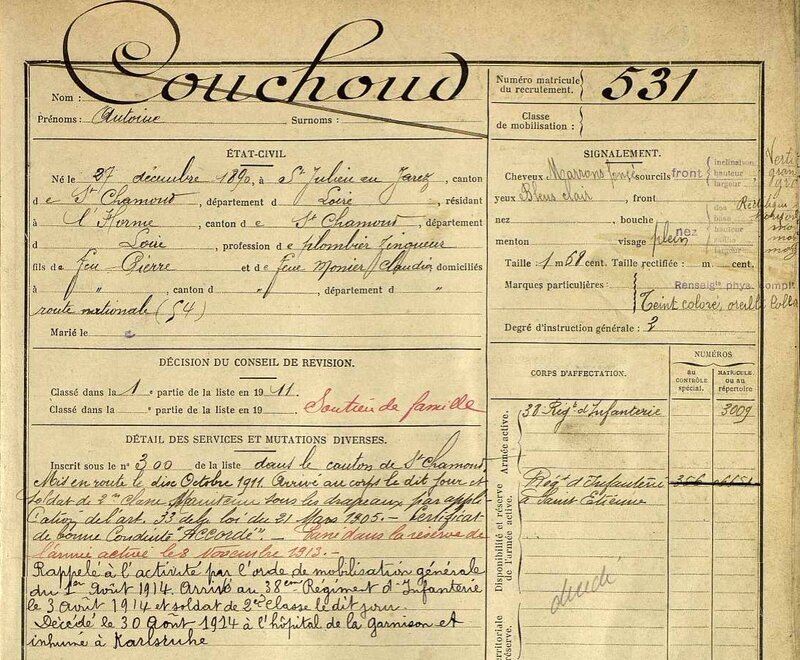 Couchoud
Nom :
Prénoms : Antoine Surnoms :
Numéro matricule du recrutement. 531
Classe de mobilisation :
ÉTAT-CIVIL
Né le 27 décembre 1890, à St Julien en Jarez, canton
de St Chamond, département d Loire, résidant
à l'Horme, canton de St Chamond, département
d Loire, profession de plombier zingueur
fils de feu Pierre et de feue Monier Claudia domiciliés
à " , canton d " , département d "
route nationale (54)
Marié le
SIGNALEMENT.
Cheveux Marrons foncé sourcils
front inclinaison hauteur largeur
yeux Bleus clair , front
nez , bouche
nez dos base hauteur
menton visage plein
Taille 1 m 58 cent. Taille rectifiée : m. cent.
Renseigts phys. compl
Marques particulières :
Teint coloré, oreille
Degré d'instruction générale : 2
DÉCISION DU CONSEIL DE REVISION.
Classé dans la 1e partie de la liste en 1911.
Classé dans la e partie de la liste en 19 Soutien de famille
DÉTAIL DES SERVICES ET MUTATIONS DIVERSES.
Inscrit sous le no 300 de la liste dans le canton de St Chamond
Mis en route le dix Octobre 1911. Arrivé au corps le dit jour et
soldat de 2me Classe. Maintenu sous les drapeaux par appli
cation de l'art. 33 de la loi du 21 Mars 1905. – Certificat
de bonne Conduite "ACCORDÉ" – Passé dans la réserve de
l'armée active le 8 Novembre 1913. –
Rappelé à l'activité par l'ordre de mobilisation générale
du 1er Août 1914. Arrivé au 38em Régiment d'Infanterie
le 3 Avril 1914 et soldat de 2e Classe le dit jour.
Décédé le 30 Août 1914 à l'hôpital de la garnison et
inhumé à Karlsruhe
CORPS D'AFFECTATION.
NUMÉROS
au contrôle spécial.
MATRICULE ou au répertoire
Armée active.
38 Régt d'Infanterie 3009
Disponibilité et réserve de l'armée active.
Régt d'Infanterie
à Saint Etienne
territoriale
réserve.